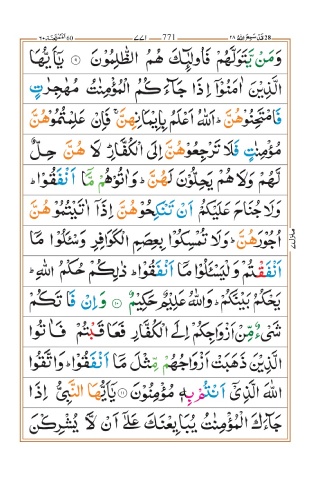 قد سمع الله ٢٨ 771 ٧٧١ الممتحنة ٦٠
وَمَنْ يَّتَوَلَّهُمْ فَاُولٰٓئِكَ هُمُ الظّٰلِمُوْنَ ۹ يٰٓاَيُّهَا
الَّذِيْنَ اٰمَنُوْٓا اِذَا جَآءَكُمُ الْمُؤْمِنٰتُ مُهٰجِرٰتٍ
فَامْتَحِنُوْهُنَّ ؕ اَللّٰهُ اَعْلَمُ بِاِيْمَانِهِنَّ ۚ فَاِنْ عَلِمْتُمُوْهُنَّ
مُؤْمِنٰتٍ فَلَا تَرْجِعُوْهُنَّ اِلَى الْكُفَّارِ ؕ لَا هُنَّ حِلٌّ
لَّهُمْ وَلَا هُمْ يَحِلُّوْنَ لَهُنَّ ؕ وَاٰتُوْهُمْ مَّآ اَنْفَقُوْا ؕ
وَلَا جُنَاحَ عَلَيْكُمْ اَنْ تَنْكِحُوْهُنَّ اِذَآ اٰتَيْتُمُوْهُنَّ
اُجُوْرَهُنَّ ؕ وَلَا تُمْسِكُوْا بِعِصَمِ الْكَوَافِرِ وَسْئَلُوْا مَآ
اَنْفَقْتُمْ وَلْيَسْئَلُوْا مَآ اَنْفَقُوْا ؕ ذٰلِكُمْ حُكْمُ اللّٰهِ ؕ
يَحْكُمُ بَيْنَكُمْ ؕ وَاللّٰهُ عَلِيْمٌ حَكِيْمٌ ۱۰ وَاِنْ فَاتَكُمْ
شَىْءٌ مِّنْ اَزْوَاجِكُمْ اِلَى الْكُفَّارِ فَعَاقَبْتُمْ فَاٰتُوا
الَّذِيْنَ ذَهَبَتْ اَزْوَاجُهُمْ مِّثْلَ مَآ اَنْفَقُوْا ؕ وَاتَّقُوا
اللّٰهَ الَّذِيْٓ اَنْتُمْ بِهٖ مُؤْمِنُوْنَ ۱۱ يٰٓاَيُّهَا النَّبِيُّ اِذَا
جَآءَكَ الْمُؤْمِنٰتُ يُبَايِعْنَكَ عَلٰٓى اَنْ لَّا يُشْرِكْنَ